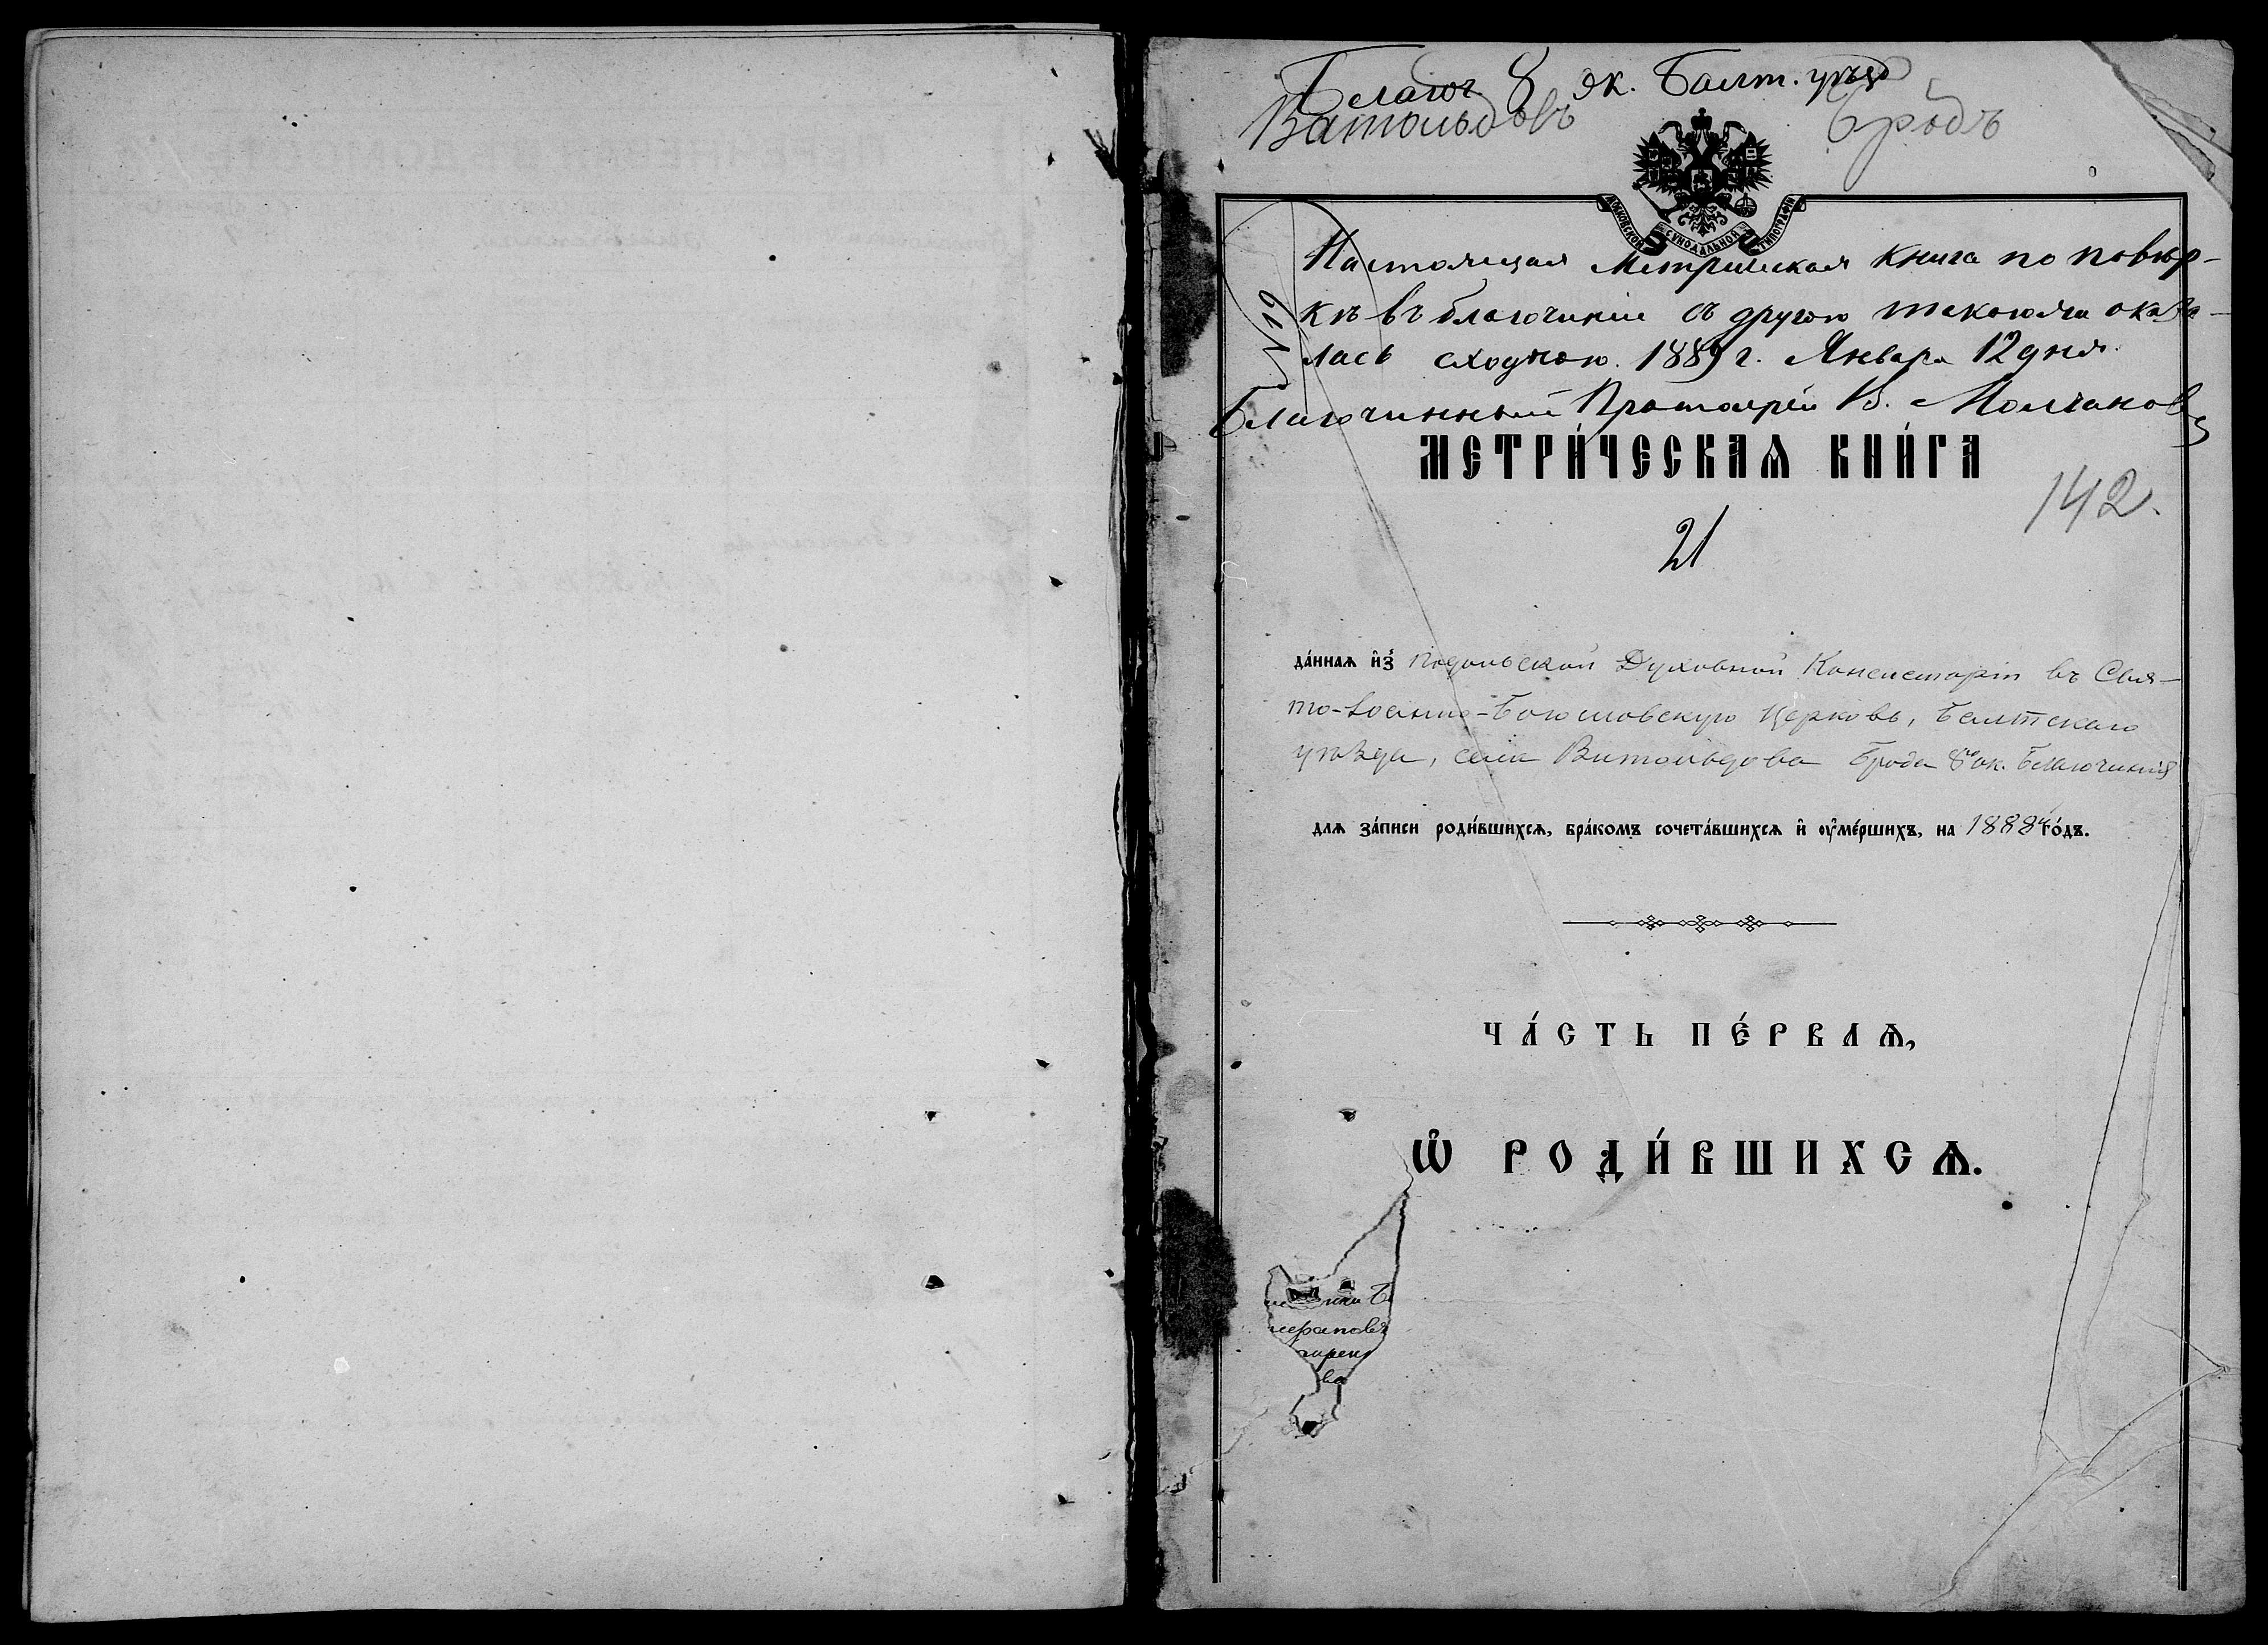 Благоч. 8 ок. Балт. уѣзд
Витольдовъ Бродъ
МОСКОВСКОЙ СУНОДАЛЬНОЙ ТИПОГРАФІИ
Настоящая Метрическая книга по повѣр-
кѣ въ благочиніи съ другою таковою же оказа-
лась сходною. 1889 г. Января 12 дня.
Благочинный Протоіерей В. Молчановъ
№ 19
МЕТРИ́ЧЕСКАѦ КНИ́ГА
142.
21
да́ннаѧ и҆з̾ Подольской Духовной Консисторіи въ Свя-
то-Іоанно-Богословскую Церковь, Балтскаго
уѣзда, села Витольдова Брода 8го ок. Благочинія
для за́писи роди́вшихсѧ, бра́комъ сочета́вшихсѧ и҆ ᲂу҆ме́ршихъ, на 1888й го́дъ.
ЧА́СТЬ ПЕ́РВАѦ,
Ѡ҆ РОДИ́ВШИХСѦ.